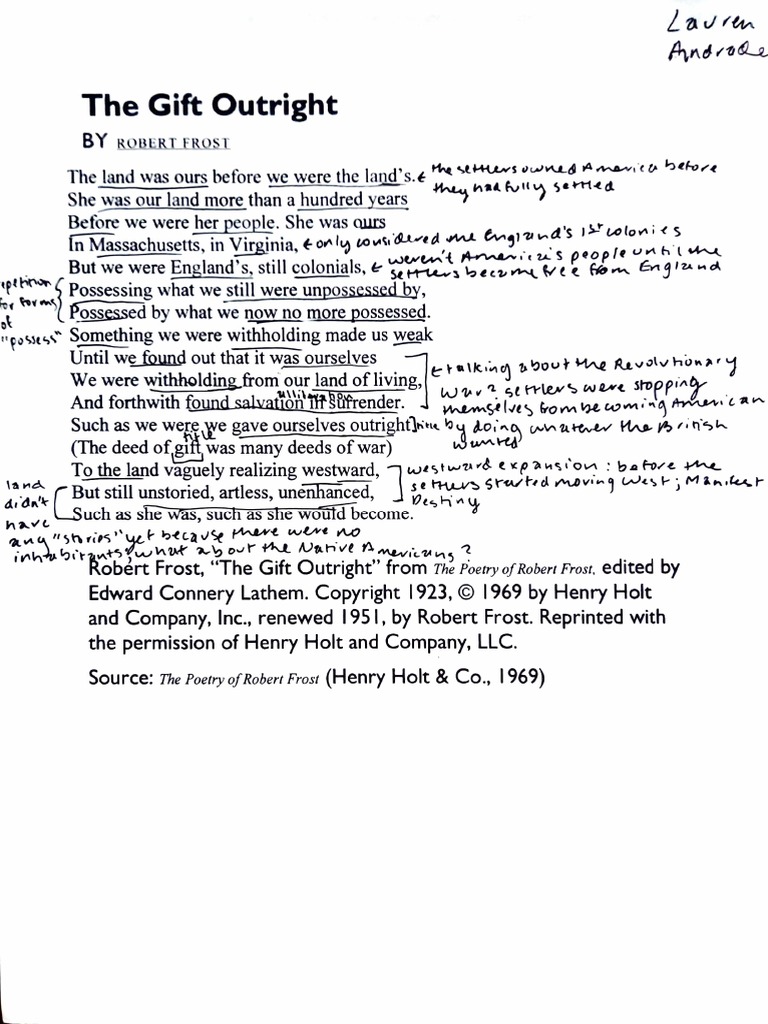 Lauren
Andrade
The Gift Outright
BY ROBERT FROST
The land was ours before we were the land's. the settlers owned America before
they had fully settled
She was our land more than a hundred years
Before we were her people. She was ours
In Massachusetts, in Virginia, only considered the England's 1st colonies
But we were England's, still colonials, weren't America's people until the
settlers became free from England
epetition
for forms
of
"possess"
Possessing what we still were unpossessed by,
Possessed by what we now no more possessed.
Something we were withholding made us weak
Until we found out that it was ourselves
We were withholding from our land of living,
And forthwith found salvation in surrender.
talking about the Revolutionary
War? settlers were stopping
themselves from becoming American
by doing whatever the British
wanted
Such as we were we gave ourselves outright
title
(The deed of gift was many deeds of war)
To the land vaguely realizing westward,
But still unstoried, artless, unenhanced,
Such as she was, such as she would become.
westward expansion: before the
settlers started moving West; Manifest
Destiny
land
didn't
have
any "stories" yet because there were no
inhabitants; what about the Native Americans?
Robert Frost, "The Gift Outright" from The Poetry of Robert Frost, edited by
Edward Connery Lathem. Copyright 1923, © 1969 by Henry Holt
and Company, Inc., renewed 1951, by Robert Frost. Reprinted with
the permission of Henry Holt and Company, LLC.
Source: The Poetry of Robert Frost (Henry Holt & Co., 1969)